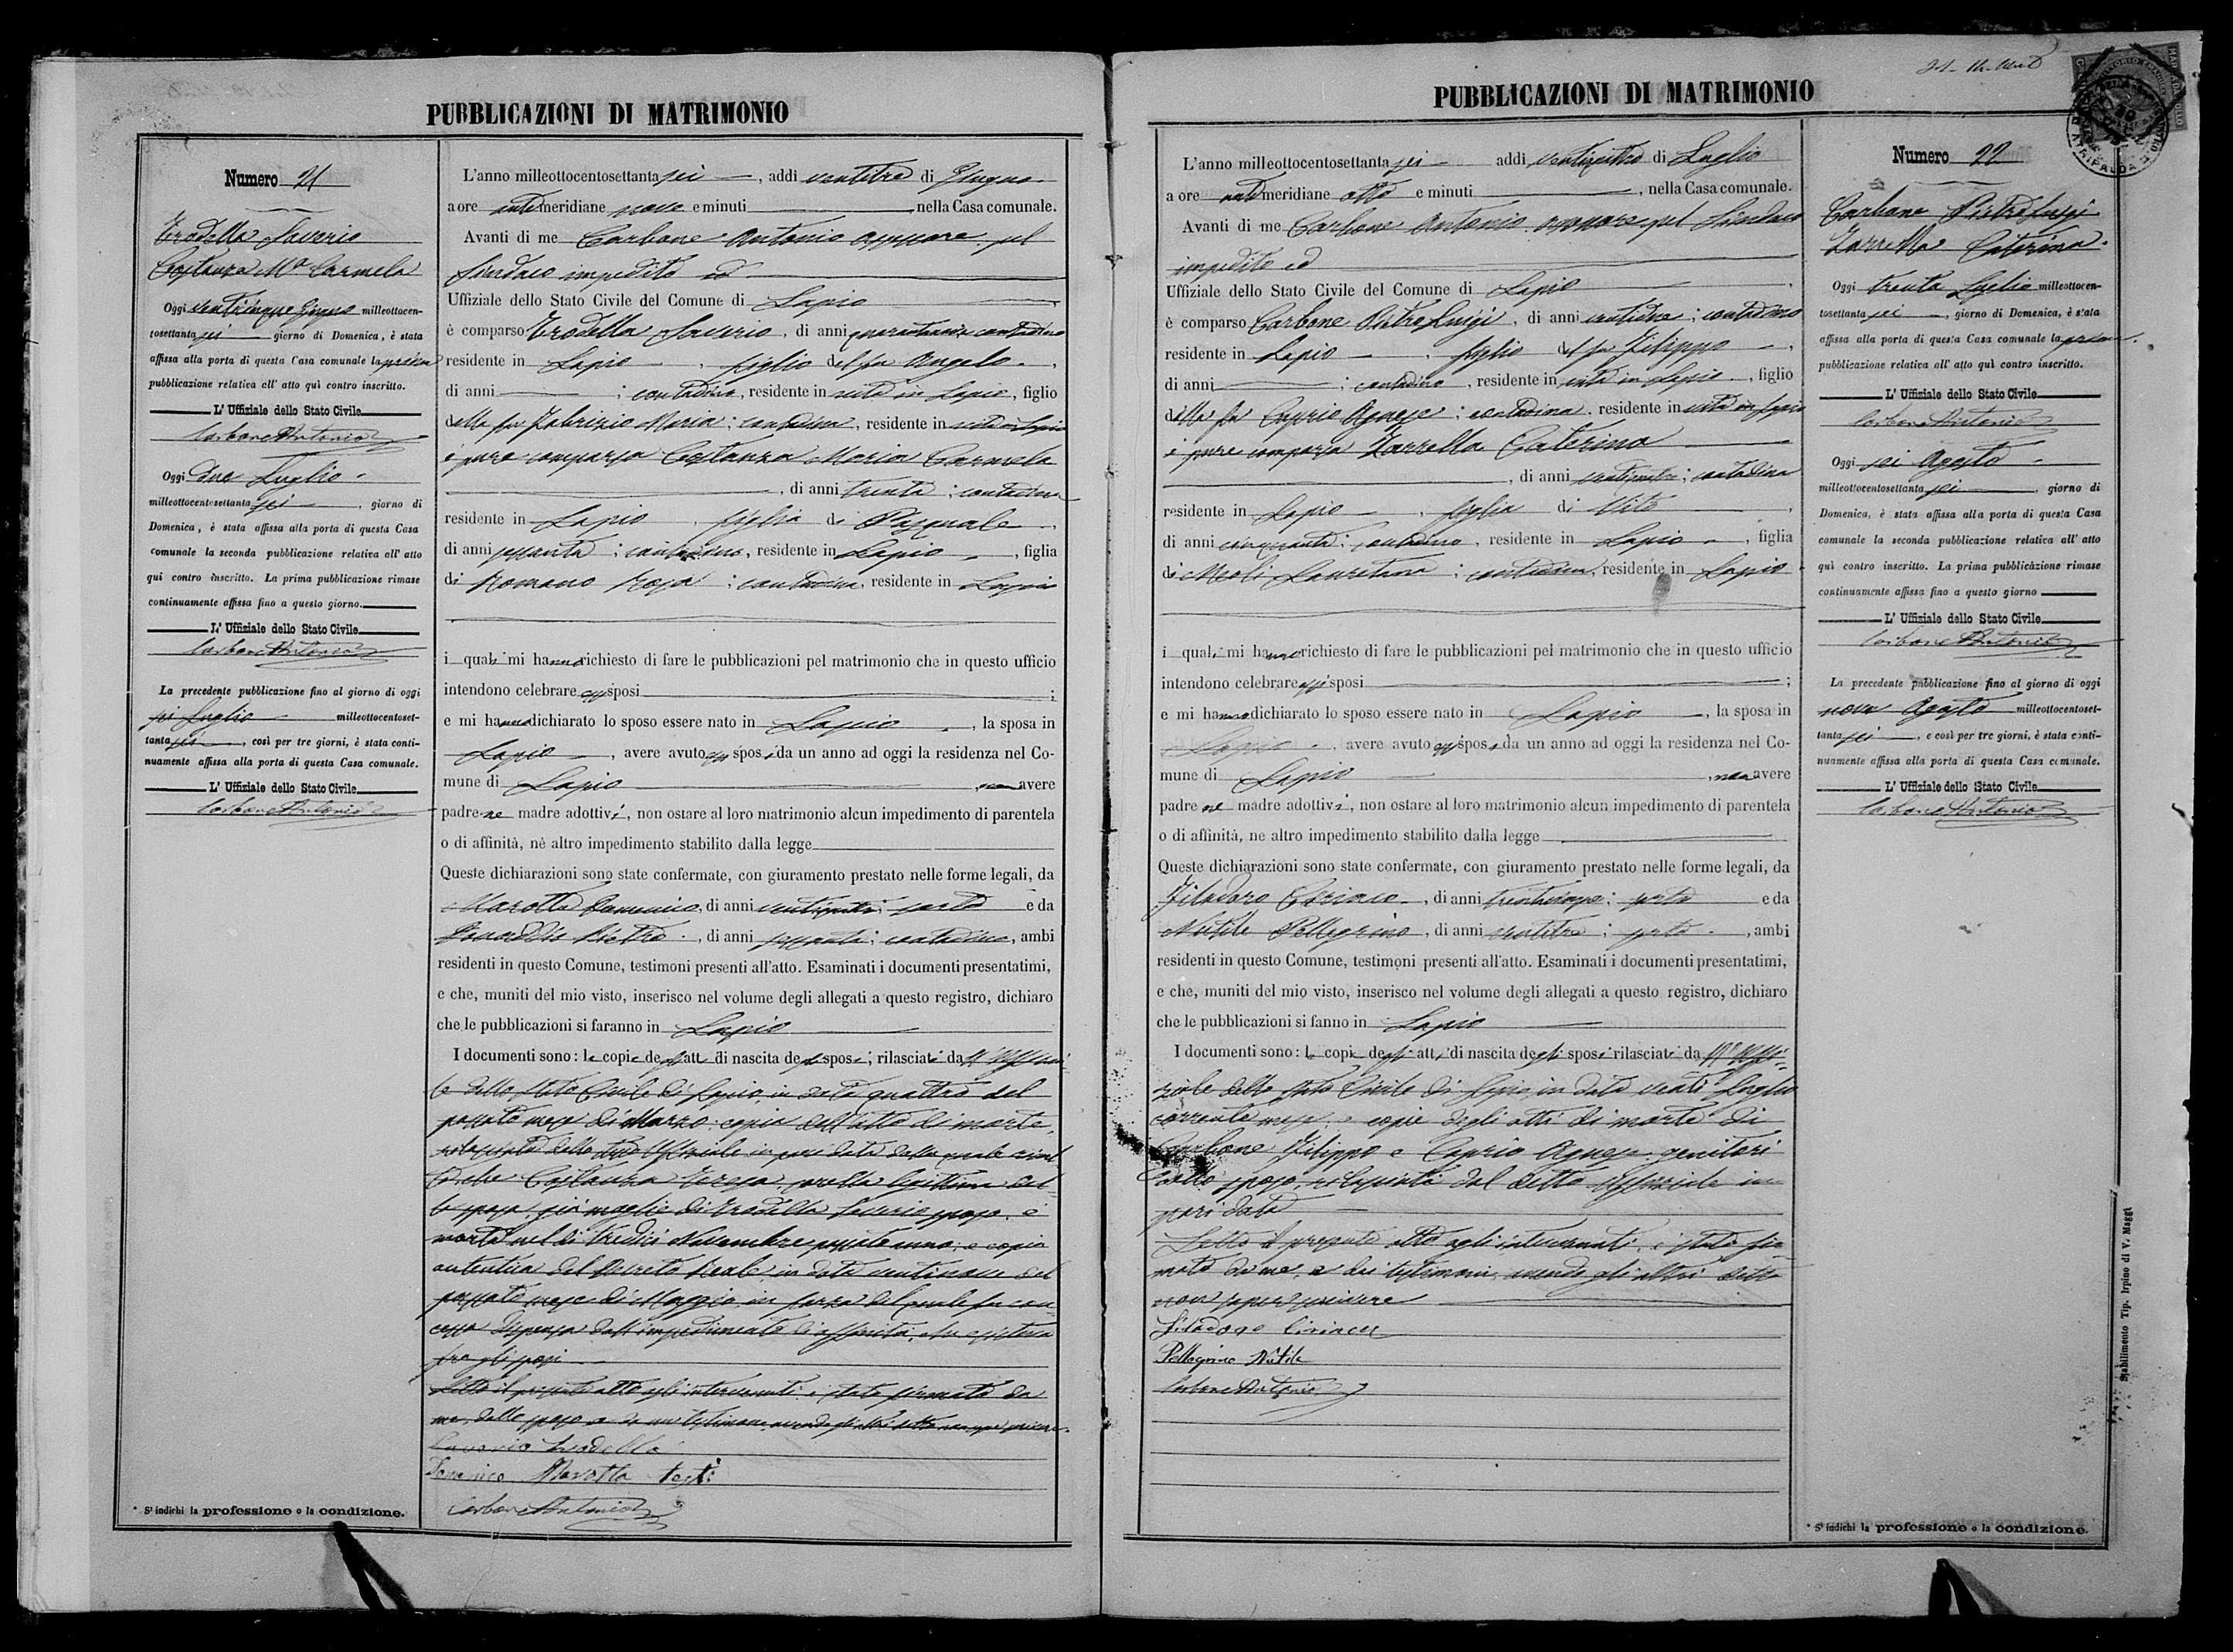 PUBBLICAZIONI DI MATRIMONIO
Numero 21
Trodella Saverio
Costanza Mª Carmela
Oggi venticinque Giugno milleottocen-
tosettanta sei giorno di Domenica, è stata
affissa alla porta di questa Casa comunale la prima
pubblicazione relativa all' atto quì contro inscritto.
L' Uffiziale dello Stato Civile
Carbone Antonio
Oggi due Luglio
milleottocentosettanta sei, giorno di
Domenica, è stata affissa alla porta di questa Casa
comunale la seconda pubblicazione relativa all' atto
qui contro inscritto. La prima pubblicazione rimase
continuamente affissa fino a questo giorno.
L' Uffiziale dello Stato Civile
Carbone Antonio
La precedente pubblicazione fino al giorno di oggi
sei Luglio milleottocentoset-
tanta sei, così per tre giorni, è stata conti-
nuamente affissa alla porta di questa Casa comunale.
L' Uffiziale dello Stato Civile
Carbone Antonio
* S' indichi la professione o la condizione.
L'anno milleottocentosettanta sei, addì ventitre di Giugno
a ore antimeridiane nove e minuti nella Casa comunale.
Avanti di me Carbone Antonio assessore pel
Sindaco impedito ed
Uffiziale dello Stato Civile del Comune di Lapio
è comparso Trodella Saverio, di anni contadino
residente in Lapio, figlio del fu Angelo,
di anni ; contadino, residente in vita in Lapio, figlio
della fu Fabrizio Maria; contadina, residente in vita in Lapio
è pure comparsa Costanza Maria Carmela
, di anni trenta; contadina
residente in Lapio, figlia di Pasquale,
di anni sessanta; contadino, residente in Lapio, figlia
di Romano Rosa; contadina, residente in Lapio
i quali mi hanno richiesto di fare le pubblicazioni pel matrimonio che in questo ufficio
intendono celebrare essi sposi ;
e mi hanno dichiarato lo sposo essere nato in Lapio, la sposa in
Lapio, avere avuto essi sposi da un anno ad oggi la residenza nel Co-
mune di Lapio, non avere
padre ne madre adottivi, non ostare al loro matrimonio alcun impedimento di parentela
o di affinità, nè altro impedimento stabilito dalla legge
Queste dichiarazioni sono state confermate, con giuramento prestato nelle forme legali, da
Marotta Domenico, di anni sarto e da
Pietro, di anni sessanta; contadino, ambi
residenti in questo Comune, testimoni presenti all'atto. Esaminati i documenti presentatimi,
e che, muniti del mio visto, inserisco nel volume degli allegati a questo registro, dichiaro
che le pubblicazioni si faranno in Lapio
I documenti sono: le copie degli atti di nascita degli sposi; rilasciati da ll' Uffizia
le dello Stato Civile di Lapio in data quattro del
passato mese di Marzo; copia dell'atto di morte,
rilasciata dallo stesso Uffiziale in pari data dalla quale risul
ta che Costanza Teresa, sorella legittima del
la sposa già moglie di Trodella Saverio sposo, è
morta nel dì tredici Novembre passato anno; e copia
autentica del Decreto Reale in data ventinove del
passato mese di Maggio, in forza del quale fu con
cessa dispensa dall'impedimento di affinità, che esisteva
fra gli sposi
Letto il presente atto agli intervenuti è stato firmato da
me, dallo sposo e da un testimone avendo gli altri detto non saper scrivere.
Saverio Trodella
Domenico Marotta test:
Carbone Antonio
PUBBLICAZIONI DI MATRIMONIO
L'anno milleottocentosettanta sei addì di Luglio
a ore antimeridiane otto e minuti, nella Casa comunale.
Avanti di me Carbone Antonio assessore pel Sindaco
impedito ed
Uffiziale dello Stato Civile del Comune di Lapio
è comparso Carbone Pietro Luigi, di anni ; contadino
residente in Lapio, figlio del fu Filippo,
di anni ; contadino, residente in vita in Lapio, figlio
della fu Caprio Agnese; contadina, residente in vita in Lapio
è pure comparsa Zarrella Caterina
, di anni ; contadina
residente in Lapio, figlia di Vito,
di anni cinquanta; contadino, residente in Lapio, figlia
di Meoli Lauretana; contadina, residente in Lapio
i quali mi hanno richiesto di fare le pubblicazioni pel matrimonio che in questo ufficio
intendono celebrare essi sposi ;
e mi hanno dichiarato lo sposo essere nato in Lapio, la sposa in
Lapio, avere avuto essi sposi da un anno ad oggi la residenza nel Co-
mune di Lapio, non avere
padre ne madre adottivi, non ostare al loro matrimonio alcun impedimento di parentela
o di affinità, ne altro impedimento stabilito dalla legge
Queste dichiarazioni sono state confermate, con giuramento prestato nelle forme legali, da
Filadoro Ciriaco, di anni ; sarto e da
Nutile Pellegrino, di anni ventitre; sarto, ambi
residenti in questo Comune, testimoni presenti all'atto. Esaminati i documenti presentatimi,
e che, muniti del mio visto, inserisco nel volume degli allegati a questo registro, dichiaro
che le pubblicazioni si fanno in Lapio
I documenti sono: le copie degli atti di nascita degli sposi rilasciati da ll' Uffi-
ziale dello Stato Civile di Lapio in data venti Luglio
corrente mese, e copie degli atti di morte di
Carbone Filippo e Caprio Agnese genitori
dello sposo, rilasciati dal detto Uffiziale in
pari data
Letto il presente atto agli intervenuti, è stato fir
mato da me, e dai testimoni, avendo gli altri detto
non saper scrivere
Filadoro Ciriaco
Pellegrino Nutile
Carbone Antonio
Numero 22
Carbone Pietro Luigi
Zarrella Caterina
Oggi trenta Luglio milleottocen-
tosettanta sei, giorno di Domenica, è stata
affissa alla porta di questa Casa comunale la prima
pubblicazione relativa all' atto quì contro inscritto.
L' Uffiziale dello Stato Civile
Carbone Antonio
Oggi sei Agosto
milleottocentosettanta sei, giorno di
Domenica, è stata affissa alla porta di questa Casa
comunale la seconda pubblicazione relativa all' atto
quì contro inscritto. La prima pubblicazione rimase
continuamente affissa fino a questo giorno
L' Uffiziale dello Stato Civile
Carbone Antonio
La precedente pubblicazione fino al giorno di oggi
nove Agosto milleottocentoset-
tanta sei, e così per tre giorni, è stata conti-
nuamente affissa alla porta di questa Casa comunale.
L' Uffiziale dello Stato Civile
Carbone Antonio
Stabilimento Tip. Irpino di V. Maggi
* S' indichi la professione o la condizione.